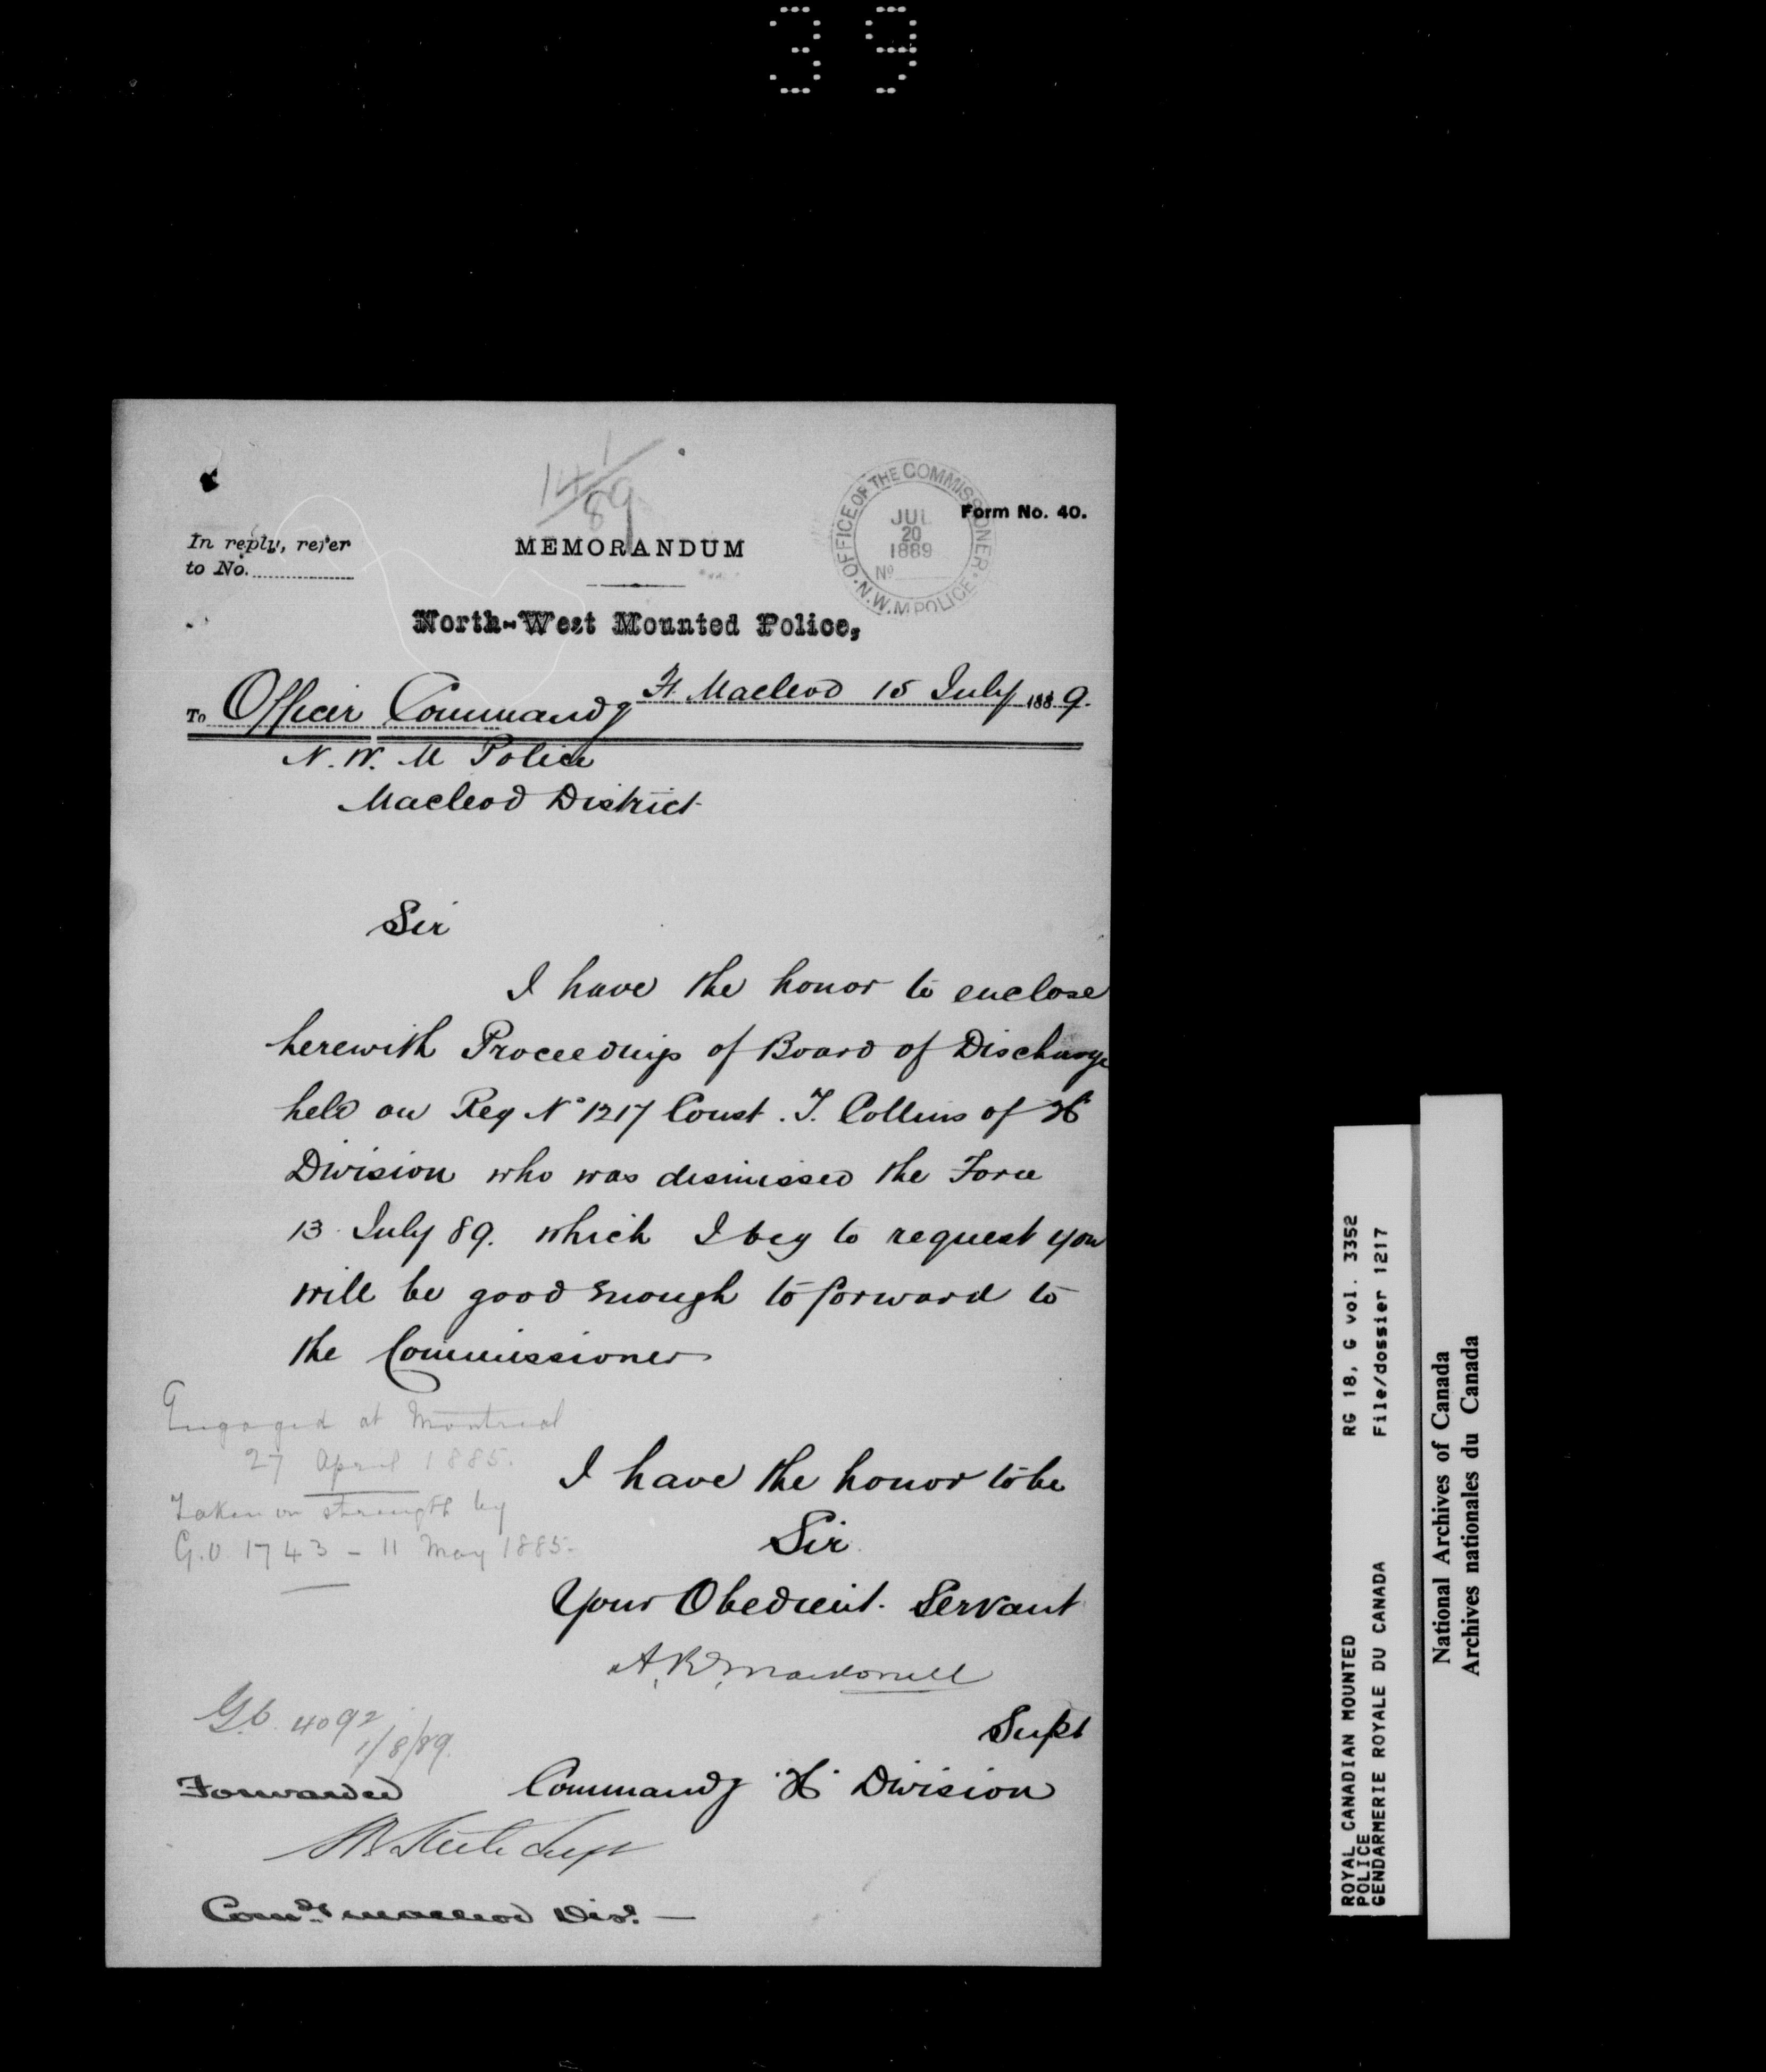 39
141/89
Form No. 40.
OFFICE OF THE COMMISSIONER
JUL
20
1889
No
N.W.M POLICE
In reply, refer
to No.
MEMORANDUM
North-West Mounted Police,
Ft. Macleod 15 July 1889.
To Officer Commandg
N. W. M Police
Macleod District
Sir
I have the honor to enclose
herewith Proceedings of Board of Discharge
held on Reg No 1217 Const. T. Collins of H
Division who was dismissed the Force
13 July 89. which I beg to request you
will be good enough to forward to
the Commissioner
Engaged at Montreal
27 April 1885.
Taken on strength by
G.O. 1743 - 11 May 1885.
I have the honor to be
Sir
Your Obedient. Servant
A.R. Macdonell
Supt
Commandg "H" Division
G.O. 4092
1/8/89.
Forwarded
SB Steele Supt
Comdg Macleod Dist. —
ROYAL CANADIAN MOUNTED
POLICE
GENDARMERIE ROYALE DU CANADA
RG 18, G vol. 3352
File/dossier 1217
National Archives of Canada
Archives nationales du Canada